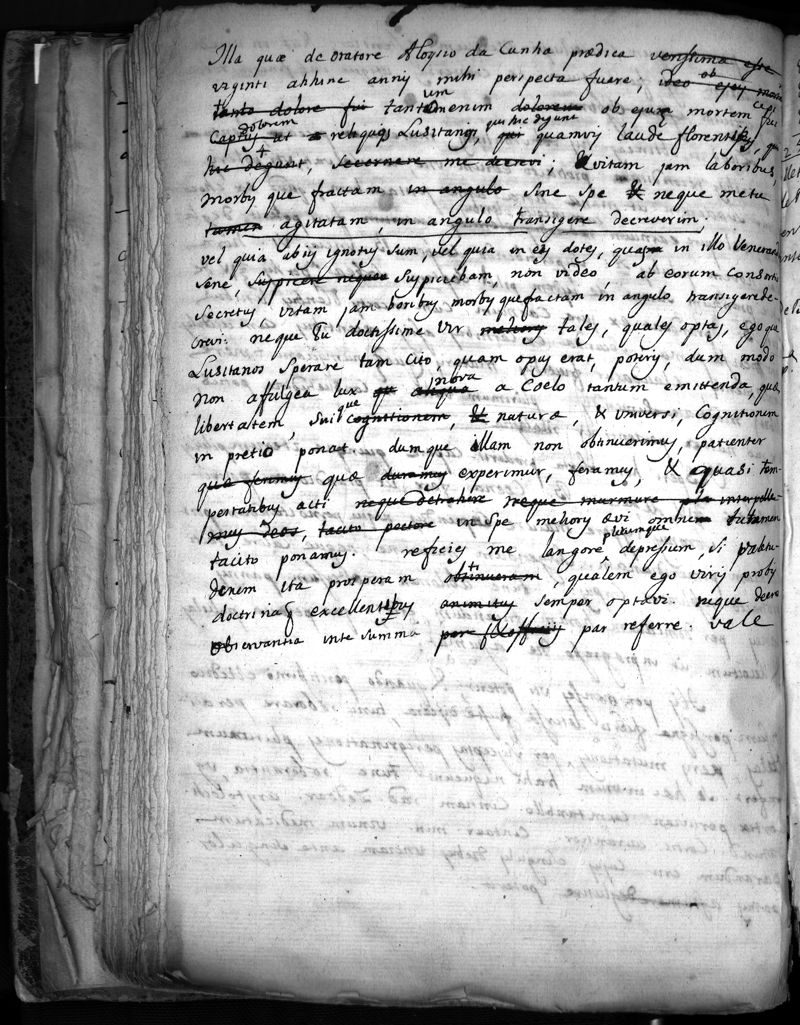 Illa quæ de oratore Aloysio da Cunha prædica verissima esse
viginti abhinc annis mihi perspecta fuere; ideo ob ejus
tanto dolore fui tantum enim dolorem ob ejus mortem
captus dolorem ut reliquos Lusitanos, qui hic degunt quamvis laude florentes,
hic degunt, secernere me decrevi; & vitam jam laboribus,
morbis que fractam in angulo sine spe & neque metu
tamen agitatam, in angulo transigere decreverim.
vel quia aliis ignotus sum, vel quia in eis dotes, quas in illo Venerando
sene, suspicere nequeo suspiciebam, non video, ab eorum consortio
secretus, vitam jam laboribus morbis que fractam in angulo transigere de-
crevi: neque Tu doctissime vir tales, quales optas, ego que
Lusitanos sperare tam cito, quam opus erat, poteris, dum modo
non affulgea lux nova a Coelo tantum emittenda, quæ
libertatem, sui que cognitionem, & naturæ, & universi, Cognitionem
in pretio ponat dumque illam non obtinuerimus, patienter
quæ ferimus quæ duramus experimur, feramus, & quasi tem-
pestatibus acti neque detrahere neque murmure
deos, tacito pectore in spe melioris ævi omnem
tacito ponamus. reficies me langore plerumque depressum, si valetu-
dinem ita prosperam obtinueram, qualem ego viris probis
doctrina que excellentibus semper optavi. neque
observantia inte summa par referre. vale